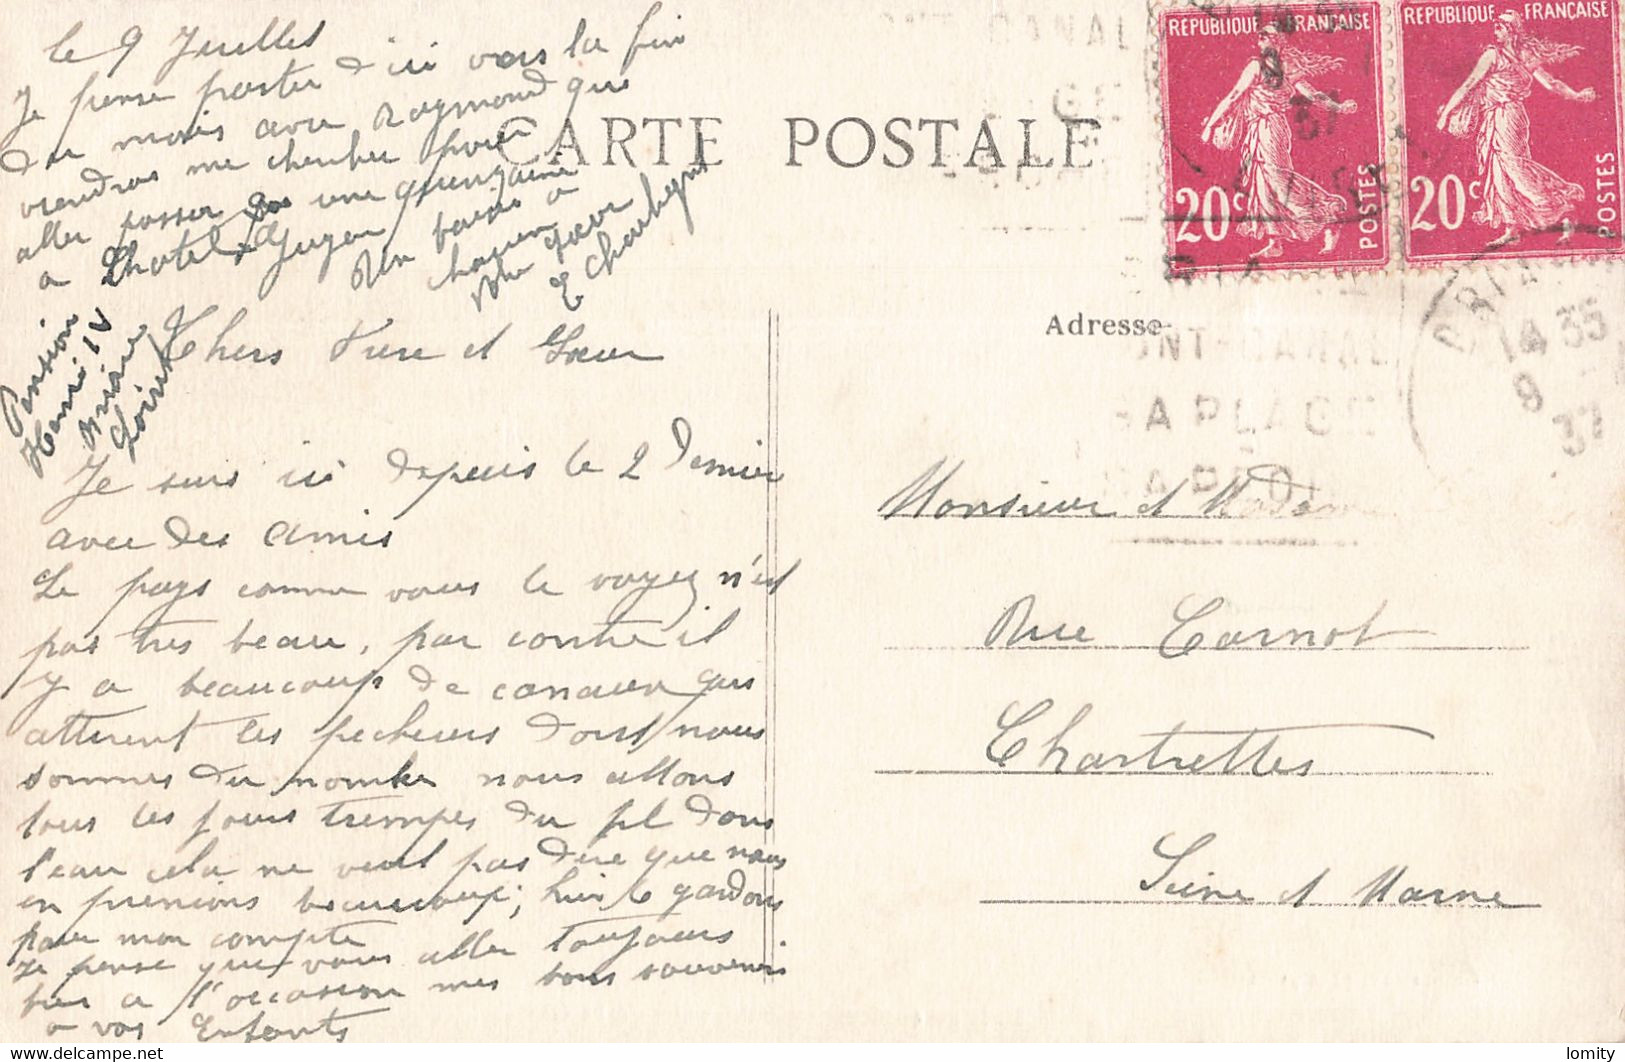 le 9 Juillet
Je pense partir d'ici vers la fin
du mois avec Raymond que
viendras me chercher pour
aller passer une quinzaine
a Chatel Guyon
Un baisé a
chacun
E Charbeyns
Pension
Henri IV
Briare
Loiret
CARTE POSTALE
REPUBLIQUE FRANÇAISE
20c
POSTES
REPUBLIQUE FRANÇAISE
20c
POSTES
9
37
BRIARE
14 35
9
37
SA PLAGE
Chers Frere et Soeur
Je suis ici depuis le 2 Dernier
avec des amis
Le pays comme vous le voyez n'est
pas tres beau, par contre il
y a beaucoup de canaux qui
attirent les pecheurs dont nous
sommes du nombre nous allons
tous les jours trempes du fil dans
l'eau cela ne veut pas dire que nous
en prenions beaucoup; hier 6 gardons
pour mon compte
Je pense que vous aller toujours
bien a l'occasion mes bons souvenirs
a vos Enfants
Adresse
Monsieur et Madame
Rue Carnot
Chartrettes
Seine et Marne
delcampe.net
lomity